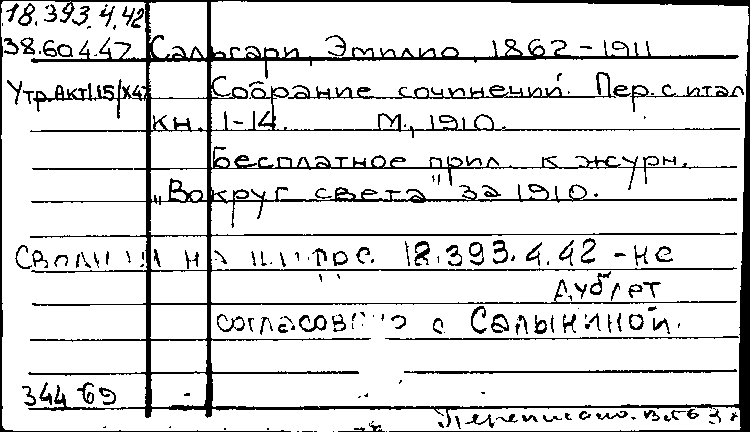 18.393.4.42
38.604.47 Сальгари, Эмилио, 1862-1911
Утр.Акт1.15/X47 Собрание сочинений. Пер. с итал
кн. 1-14. М., 1910.
Бесплатное прил. к журн.
„Вокруг света" за 1910.
на 18.393.4.42 - не
дублет
согласовано с Салыниной.
344 69 -
Переписано.